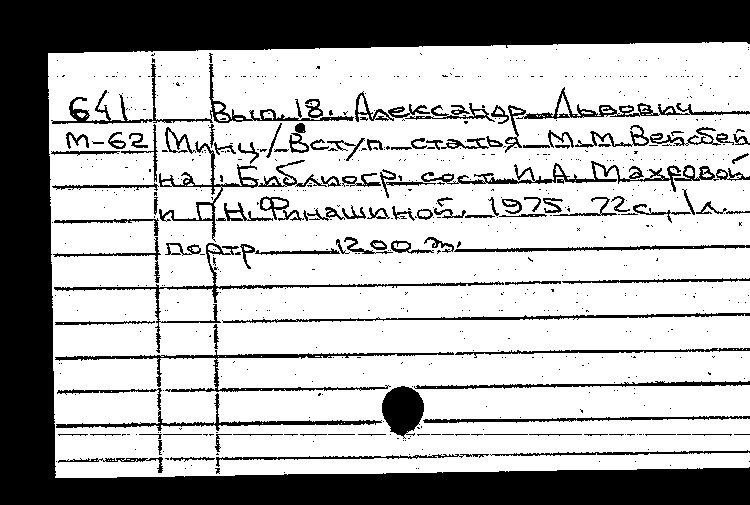 641 Вып. 18. Александр Львович
М-62 Минц / Вступ. статья М.М. Вейсбей
на ; Библиогр. сост. И.А. Махровой
и Г.Н. Финашиной. 1975. 72 с., 1 л.
портр. 1200 э.